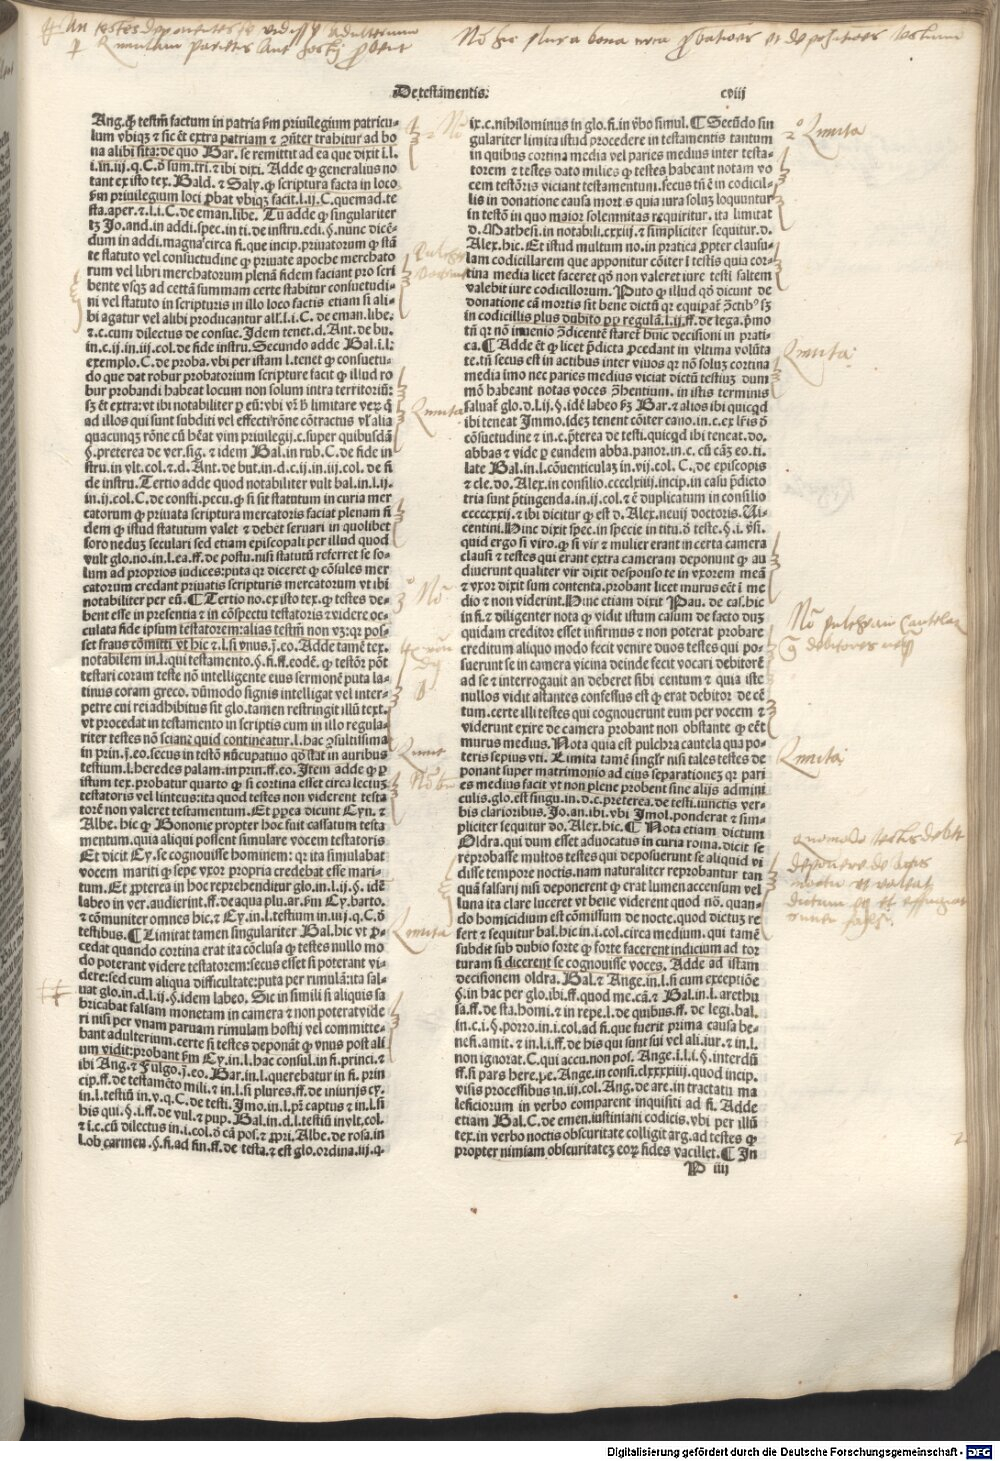 De testamentis.
cviij
Ang. ꝙ testm̄ factum in patria ẜm priuilegium patricu-
lum vbiqꝫ ⁊ sic ēt extra patriam ⁊ ꝯñter trahitur ad bo
na alibi sita: de quo Bar. se remittit ad ea que dixit i.l.
i.in.iij.q.C.ð sum.tri.⁊ ibi dixi. Adde ꝙ generalius no
tant ex isto tex. Bald. ⁊ Saly. ꝙ scriptura facta in loco
ẜm priuilegium loci ꝓbat vbiqꝫ facit.l.ij.C.quemad.te
sta.aper.⁊.l.i.C.de eman.libe. Tu adde ꝙ singulariter
tꝫ Jo.and.in addi.spec.in ti.de instru.edi.§.nunc dicē-
dum in addi.magna circa fi.que incip.priuatorum ꝙ stā
te statuto vel consuetudine ꝙ priuate apoche mercato
rum vel libri mercatorum plenā fidem faciant pro scri
bente vsqꝫ ad certā summam certe stabitur consuetudi-
ni vel statuto in scripturis in illo loco factis etiam si ali-
bi agatur vel alibi producantur all.l.i.C.de eman.libe.
⁊.c.cum dilectus de consue. Idem tenet.d.Ant.de bu.
in.c.ij.in.iij.col.de fide instru. Secundo adde Bal.i.l.
exemplo.C.de proba.vbi per istam l.tenet ꝙ consuetu-
do que dat robur probatorium scripture facit ꝙ illud ro
bur probandi habeat locum non solum intra territoriū:
sꝫ ēt extra: vt ibi notabiliter ꝑ eū: vbi vr̄ ꝺ limitare verꝫ ꝙ
ad illos qui sunt subditi vel effecti rōne cōtractus vl̓ alia
quacunqꝫ rōne cū hēat vim priuilegij.c.super quibusdā
§.preterea de ver.sig.⁊ idem Bal.in rub.C.de fide in
stru.in vlt.col.⁊.d.Ant.de but.in.d.c.ij.in iij.col.de fi
de instru. Tertio adde quod notabiliter vult bal.in.l.ij.
in.ij.col.C.de consti.pecu.ꝙ si sit statutum in curia mer
catorum ꝙ priuata scriptura mercatoris faciat plenam fi
dem ꝙ istud statutum valet ⁊ debet seruari in quolibet
foro nedum seculari sed etiam episcopali per illud quod
vult glo.no.in.l.ea.ff.de postu.nisi statutū referret se so-
lum ad proprios iudices: puta qꝛ diceret ꝙ cōsules mer
catorum credant priuatis scripturis mercatorum vt ibi
notabiliter per eū. ¶ Tertio no.ex isto tex.ꝙ testes de-
bent esse in presentia ⁊ in cōspectu testatoris ⁊ videre oc-
culata fide ipsum testatorem: alias testm̄ non vꝫ: qꝛ pos-
set fraus cōmitti vt hic ⁊.l.si vnus.j.eo. Adde tamē tex.
notabilem in.l.qui testamento.§.fi.ff.eodē.ꝙ testōr pōt
testari coram teste nō intelligente eius sermonē puta la-
tinus coram greco. dūmodo signis intelligat vel inter-
petre cui rei adhibitus sit glo.tamen restringit illū text.
vt procedat in testamento in scriptis cum in illo regula-
riter testes nō sciant quid contineatur.l.hac ꝯsultissima
in prin.j.eo.secus in testō nūcupatiuo qð stat in auribus
testium.l.heredes palam.in prin.ff.eo. Item adde ꝙ ꝑ
istum tex.probatur quarto ꝙ si cortina esset circa lectum
testatoris vel linteus: ita quod testes non viderent testa
torē non valeret testamentum. Et ꝓpea dicunt Cyn. ⁊
Albe.hic ꝙ Bononie propter hoc fuit cassatum testa
mentum. quia aliqui possent simulare vocem testatoris
Et dicit Cy.se cognouisse hominem: qꝛ ita simulabat
vocem mariti ꝙ sepe vxor propria credebat esse mari-
tum. Et ꝓpterea in hoc reprehenditur glo.in.l.ij.§.idē
labeo in ver.audierint.ff.de aqua plu.ar.ẜm Cy.barto.
⁊ cōmuniter omnes hic.⁊ Cy.in.l.testium in.iij.q.C.ð
testibus. ¶ Limitat tamen singulariter Bal.hic vt ꝓ-
cedat quando cortina erat ita cōclusa ꝙ testes nullo mo
do poterant videre testatorem: secus esset si poterant vi-
dere: sed cum aliqua difficultate: puta per rimulā: ita sal-
uat glo.in.d.l.ij.§.idem labeo. Sic in simili si aliquis fa
bricabat falsam monetam in camera ⁊ non poterat vide
ri nisi per vnam paruam rimulam hostij vel committe-
bant adulterium. certe si testes deponāt ꝙ vnus post ali
um vidit: probant ẜm Cy.in.l.hac consul.in fi.princi.⁊
ibi Ang.⁊ Fulgo.j.eo. Bar.in.l.querebatur in fi.prin
cip.ff.de testamēto mili.⁊ in.l.si plures.ff.de iniurijs cy.
in.l.testiū in.v.q.C.de testi. Imo.in.l.pꝛ̄ captus ⁊ in.l.si
his qui.§.i.ff.de vul.⁊ pup. Bal.in.d.l.testiū in vlt.col.
⁊ i.c.cū dilectus in.i.col.ð cā pos.⁊ ꝓpri. Albe.de rosa.in
l.ob carmen.§.fi.ad fin.ff.de testa.⁊ est glo.ordina.iij.q.
ix.c.nihilominus in glo.fi.in ꝟbo simul. ¶ Secūdo sin
gulariter limita istud procedere in testamentis tantum
in quibus cortina media vel paries medius inter testa-
torem ⁊ testes dato milies ꝙ testes habeant notam vo
cem testōris viciant testamentum. secus tn̄ ē in codicil-
lis in donatione causa mortis quia iura solum loquuntur
in testō in quo maior solemnitas requiritur. ita limitat
d.Mathesi.in notabili.cxxiij.⁊ simpliciter sequitur.d.
Alex.hic. Et istud multum no.in pratica ꝓpter clausu-
lam codicillarem que apponitur cōiter i testis quia cor-
tina media licet faceret qð non valeret iure testi saltem
valebit iure codicillorum. Puto ꝙ illud qð dicunt de
donatione cā mortis sit bene dictū qꝛ equipar̄ ꝯctibꝰ sꝫ
in codicillis plus dubito ꝓp regulā.l.ij.ff.de lega.pͥmo
tn̄ qꝛ nō inuenio ꝯdicentē starē huic decisioni in prati-
ca. ¶ Adde ēt ꝙ licet pͣdicta ꝓcedant in vltima volūta
te.tn̄ secus est in actibus inter viuos qꝛ nō solum cortina
media imo nec paries medius viciat dictū testium dum
mō habeant notas voces ꝯhentium. in istis terminus
saluat̄ glo.d.l.ij.§.idē labeo sꝫ Bar.⁊ alios ibi quicqd
ibi teneat Immo.idem tenent cōiter cano.in.c.ex lr̄is ð
cōsuetudine ⁊ in.c.pͣterea de testi.quicqd ibi teneat.do.
abbas ⁊ vide ꝑ eundem abba.panor.in.c.cū cām eo.ti.
late Bal.in.l.cōuenticulam in.vij.col.C.de episcopis
⁊ cle.do.Alex.in consilio.cccclxiiij.incip.in casu pͣdicto
tria sunt pͣtingenda.in.ij.col.⁊ ē duplicatum in consilio
cccccxxij.⁊ ibi dicitur ꝙ est d.Alex.neuij doctoris. Ui-
centini. Hinc dixit spec.in specie in titu.ð teste.§.i.ꝟsi.
quid ergo si viro.ꝙ si vir ⁊ mulier erant in certa camera
clausi ⁊ testes qui erant extra cameram deponunt ꝙ au
diuerunt qualiter vir dixit desponso te in vxorem meā
⁊ vxor dixit sum contenta. probant licet murus eēt i me
dio ⁊ non viderint. Hinc etiam dixit Pau.de cas.hic
in fi.⁊ diligenter nota ꝙ vidit istum casum de facto dum
quidam creditor esset infirmus ⁊ non poterat probare
creditum aliquo modo fecit venire duos testes qui po-
suerunt se in camera vicina deinde fecit vocari debitorē
ad se ⁊ interrogauit an deberet sibi centum ⁊ quia iste
nullos vidit astantes confessus est ꝙ erat debitor de cē
tum. certe illi testes qui cognouerunt eum per vocem ⁊
viderunt exire de camera probant non obstante ꝙ eēt
murus medius. Nota quia est pulchra cautela qua po-
teris sepius vti. Limita tamē singlr̄ nisi tales testes de
ponant super matrimonio ad eius separationem qꝛ pari
es medius facit vt non plene probent sine alijs admini
culis.glo.est singu.in.d.c.preterea.de testi.iunctis ver-
bis clarioribus. Jo.an.ibi.vbi Imol.ponderat ⁊ sim-
pliciter sequitur do.Alex.hic. ¶ Nota etiam dictum
Oldra.qui dum esset aduocatus in curia roma. dicit se
reprobasse multos testes qui deposuerunt se aliquid vi
disse tempore noctis. nam naturaliter reprobantur tan
quā falsarij nisi deponerent ꝙ erat lumen accensum vel
luna ita clare luceret vt bene viderent quod nō. quan-
do homicidium est cōmissum de nocte. quod dictum re
fert ⁊ sequitur bal.hic in.i.col.circa medium. qui tamē
subdit sub dubio forte ꝙ forte facerent indicium ad tor
turam si dicerent se cognouisse voces. Adde ad istam
decisionem oldra. Bal.⁊ Ange.in.l.si cum exceptiōe
§.in hac per glo.ibi.ff.quod me.cā.⁊ Bal.in.l.arethu
sa.ff.de sta.homi.⁊ in repe.l.de quibus.ff.de legi.bal.
in.c.i.§.porro.in.i.col.ad fi.que fuerit prima causa be-
nefi.amit.⁊ in.l.i.ff.de his qui sunt sui vel ali.iur.⁊ in.l.
non ignorat.C.qui accu.non pos. Ange.i.l.i.§.interdū
ff.si pars here.pe. Ange.in consi.clxxxxiiij.quod incip.
visis processibus in.iij.col. Ang.de are.in tractatu ma
leficiorum in verbo comparent inquisiti ad fi. Adde
etiam Bal.C.de emen.iustiniani codicis.vbi per illū
tex.in verbo noctis obscuritate colligit arg.ad testes ꝙ
propter nimiam obscuritatem eorum fides vacillet. ¶ In
P iiij
Limita
Limita
Limita
Limita
Limita
Digitalisierung gefördert durch die Deutsche Forschungsgemeinschaft - DFG